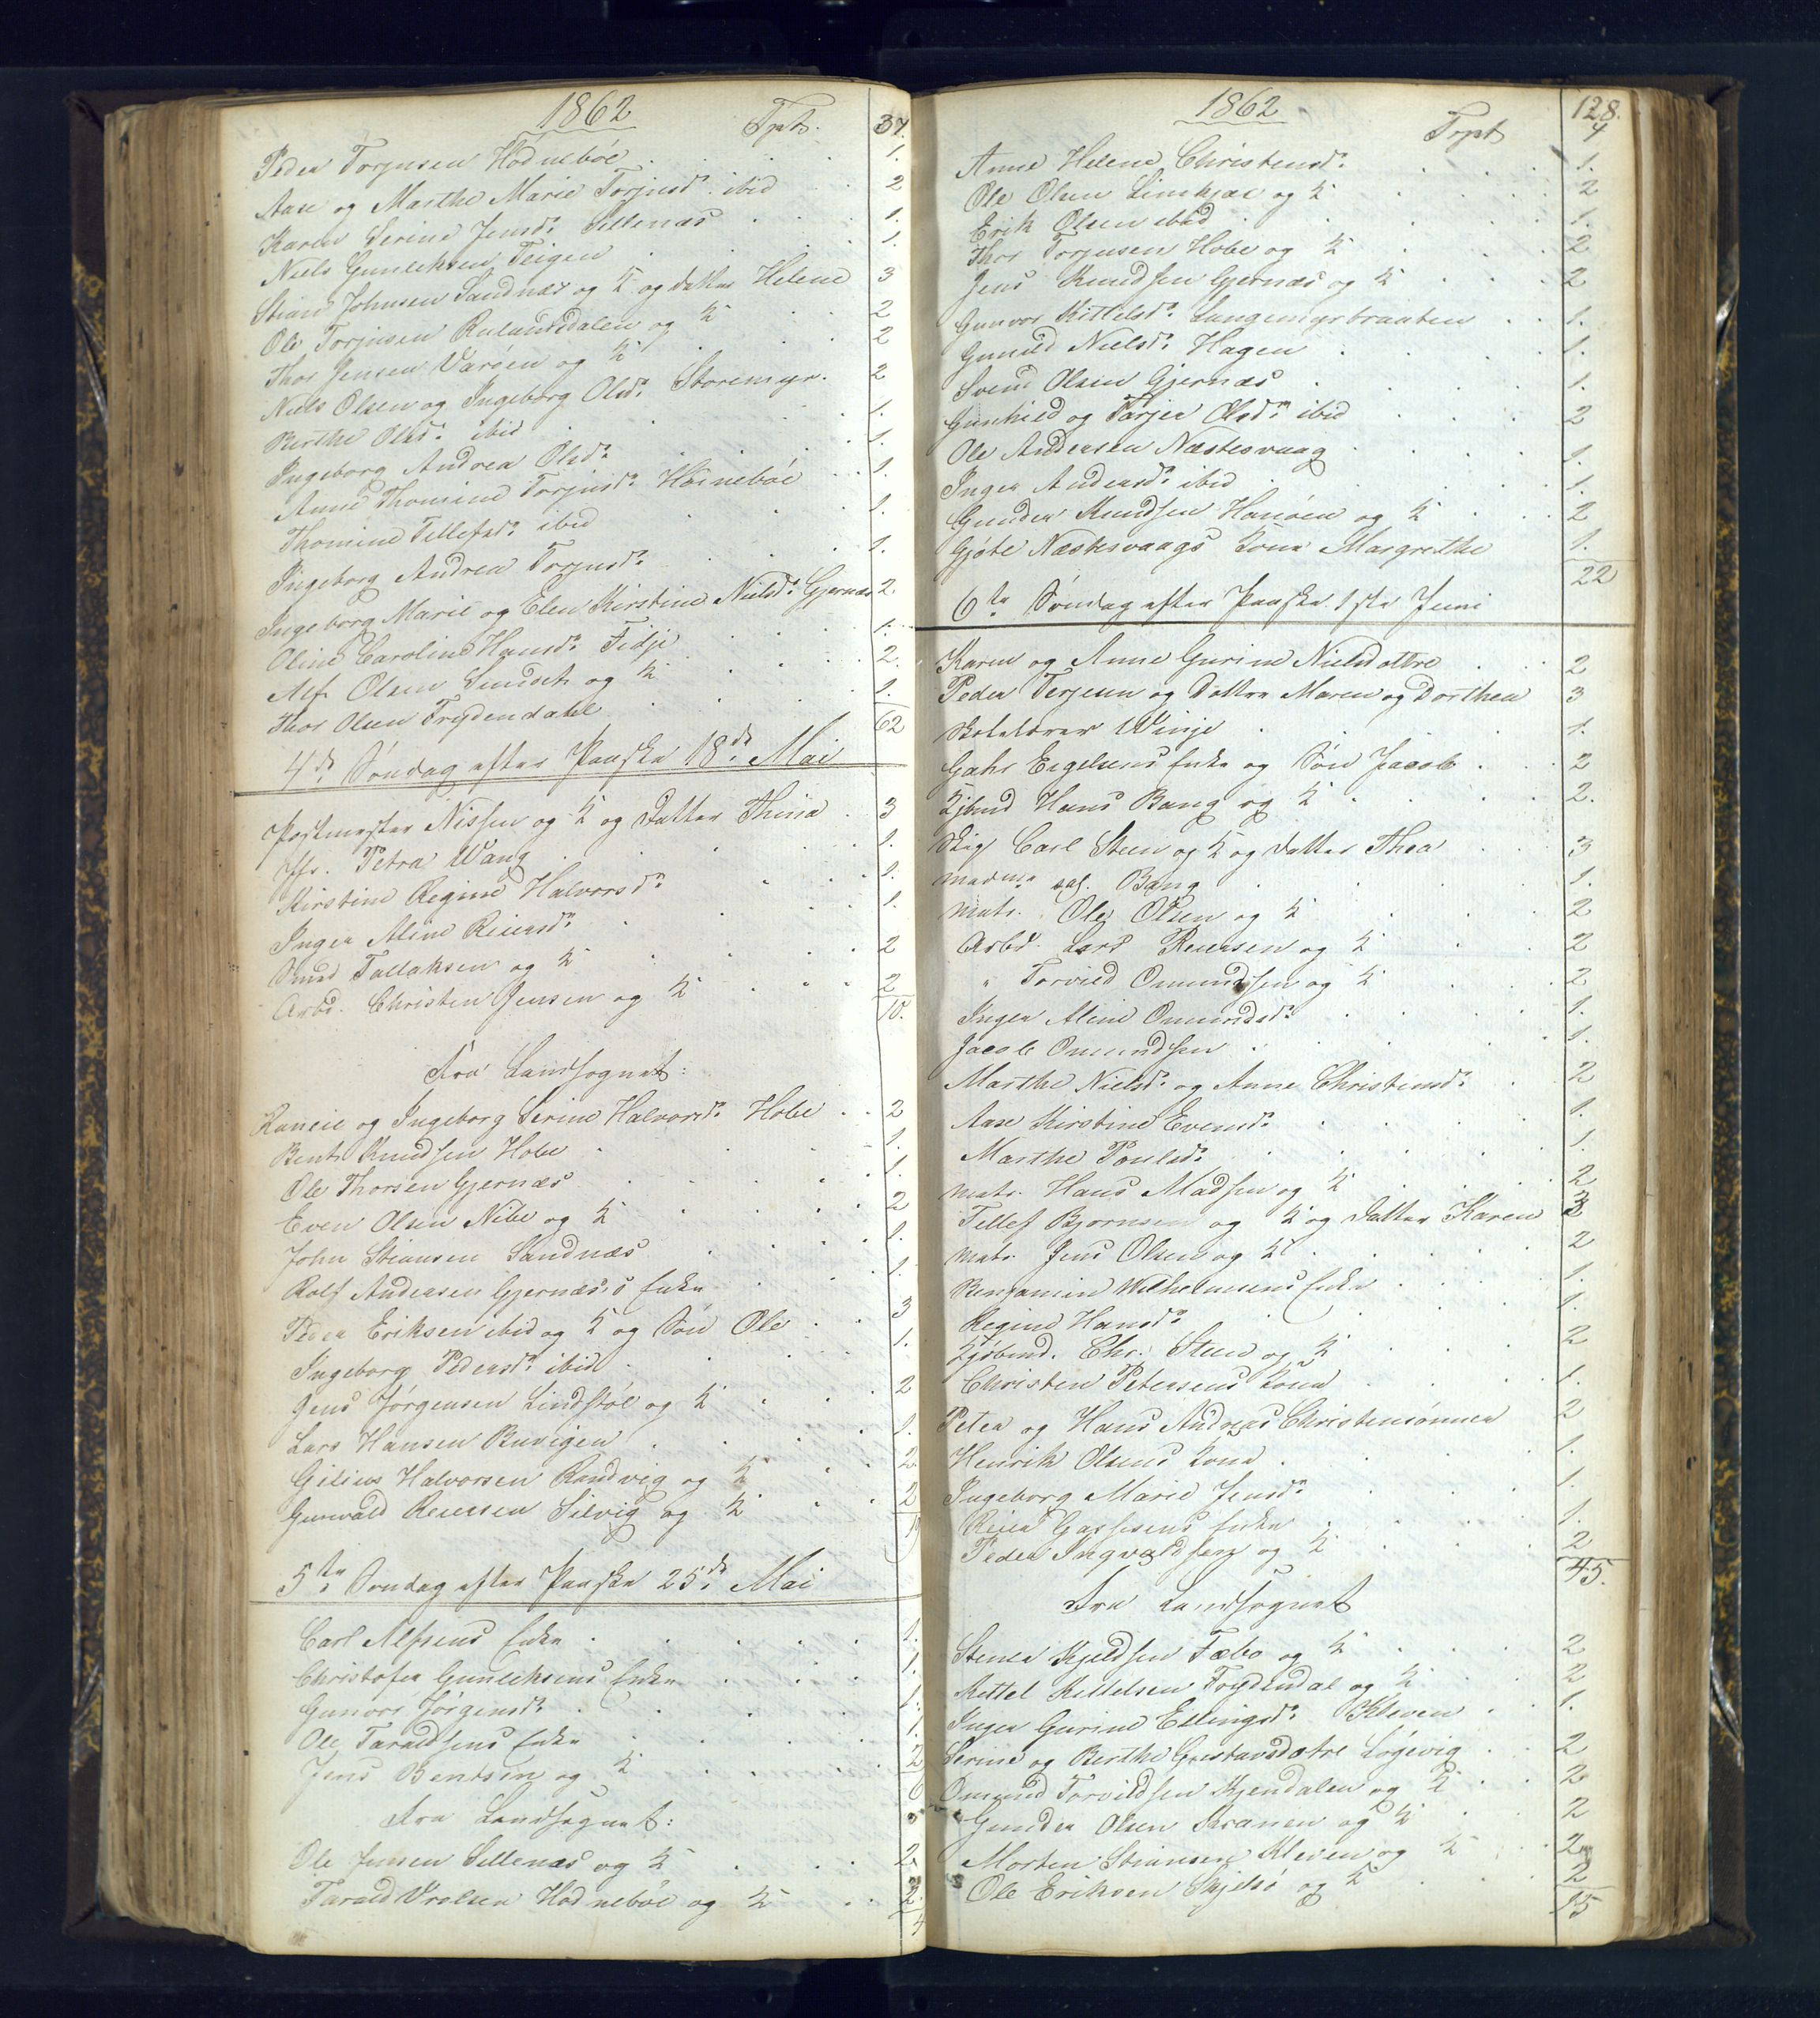 1862
Tpt. 37.
Peder Torjusen Hodnebøe 1.
Aase og Marthe Marie Torjusdr. ibid 2
Karen Serine Jensdr. Sillenæs 1.
Niels Gunleksen Teigen 1.
Stian Johnsen Sandnæs og K og datter Helene 3
Ole Torjusen Rulandsdalen og K 2
Thor Jensen Varøen og K 2
Niels Olsen og Ingeborg Olsdr. Storemyr. 2
Berthe Olsdr. ibid 1.
Ingeborg Andrea Olsdr. 1.
Anne Thomine Torjusdr. Hodnebøe 1.
Thomine Tellefsdr. ibid 1.
Ingeborg Andrea Torjusdr. 1.
Ingeborg Marie og Elen Kirstine Nielsdr. Gjernæs 2.
Oline Caroline Hansdr. Fidje 1.
Alf Olsen og K 2.
Thor Olsen Frydendahl 1.
62
4de Søndag efter Paaske 18de Mai
Postmester Nissen og K og Datter Thina 3
Jfr. Petra Wang 1.
Kirstine Regine Halvorsdr. 1.
Inger Aline Reiersdr. 1.
Smed Tallaksen og K 2
Arbd. Christen Jensen og K 2
10.
Fra Landsognet:
Raneie og Ingeborg Serine Halvorsdr. Hobe 2
Bent Knudsen Hobe 1.
Ole Thorsen Gjernæs 1.
Even Olsen Nibe og K 2
John Stiansen Sandnæs 1.
Rolf Andersen Gjernæs's Enke 1.
Peder Eriksen ibid og K og Søn Ole 3
Ingeborg Pedersdr. ibid 1.
Jens Jørgensen Lindstøl og K 2
Lars Hansen Buvigen 1.
Gilius Halvorsen Randvig og K 2
Gunvald Reiersen Silvig og K 2
19
5te Søndag efter Paaske 25de Mai
Carl Alfsens Enke 1.
Christofer Gunleksens Enke 1.
Gunvor Jørgensdr. 1.
Ole Taraldsens Enke 1.
Jens Bentsen og K 2
6
Fra Landsognet:
Ole Jensen Sillenæs og K 2
Tarald Vrolsen Hodnebøe og K 2
4
1862 128.
Trpt 4
Anne Helene Christensdr. 1.
Ole Olsen Limkjær og K 2
Erik Olsen ibid 1.
Thor Torjusen Hobe og K 2
Jens Knudsen Gjernæs og K 2
Gunvor Kittelsdr. Langemyrbraaten 1.
Gunild Nielsdr. Hagen 1.
Svend Olsen Gjernæs 1.
Gunhild og Tarjer Olsdr. ibid 2
Ole Andersen Næstesvaag 1.
Inger Andersdr. ibid 1.
Gunder Knudsen Hanøen og K 2
Gjøte Næstesvaags Kone Margrethe 1.
22
6te Søndag efter Paaske 1ste Juni
Karen og Anne Gurine Nielsdattre 2
Peder Terjesen og Døttre Maren og Dorthea 3
Skolelærer Winje 1.
Eegelsens Enke og Søn Jacob 2
Kjbmd Hans Bang og K 2.
Skip Carl Steen og K og Datter Thea 3
Madme sal. Bang 1.
Matr. Ole Olsen og K 2
Arbd. Lars Reiersen og K 2
" Torvild Omundsen og K 2
Inger Aline Omundsdr. 1.
Jacob Omundsen 1.
Marthe Nielsdr. og Anne Christensdr. 2
Aase Kirstine Evensdr. 1.
Marthe Poulsdr. 1.
Matr. Hans Madsen og K 2
Tellef Bjornsen og K og Datter Karen 3
Matr. Jens Olsen og K 2
Benjamin Wilhelmsens Enke 1.
Regine Hansdr. 1.
Kjøbmd. Chr. Steen og K 2
Christen Petersens Kone 1.
Peter og Hans Andreas Christensønner 2
Henrik Olsens Kone 1.
Ingeborg Marie Jensdr. 1.
Reier Enke 1.
Peder Ingvaldsen og K 2
45.
Fra Landsognet
Stener Kjeldsen Fæbo og K 2
Kittel Kittelsen Frydendal og K 2
Inger Gurine Ellingsdr. Kleven 1.
Serine og Berthe Gustavsdøtre Løgevig 2
Omund Torvildsen Kjendalen og K 2
Gunder Olsen Kranen og K 2
Morten Stiansen Kleven og K 2
Ole Eriksen Skjelsø og K 2
15